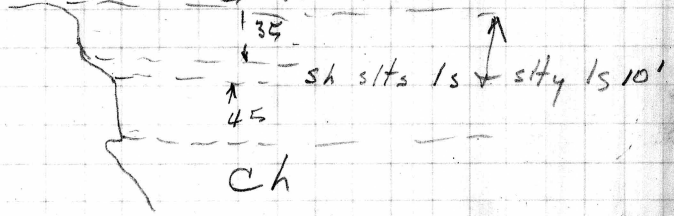 35
sh slts ls slty ls 10'
45
Ch